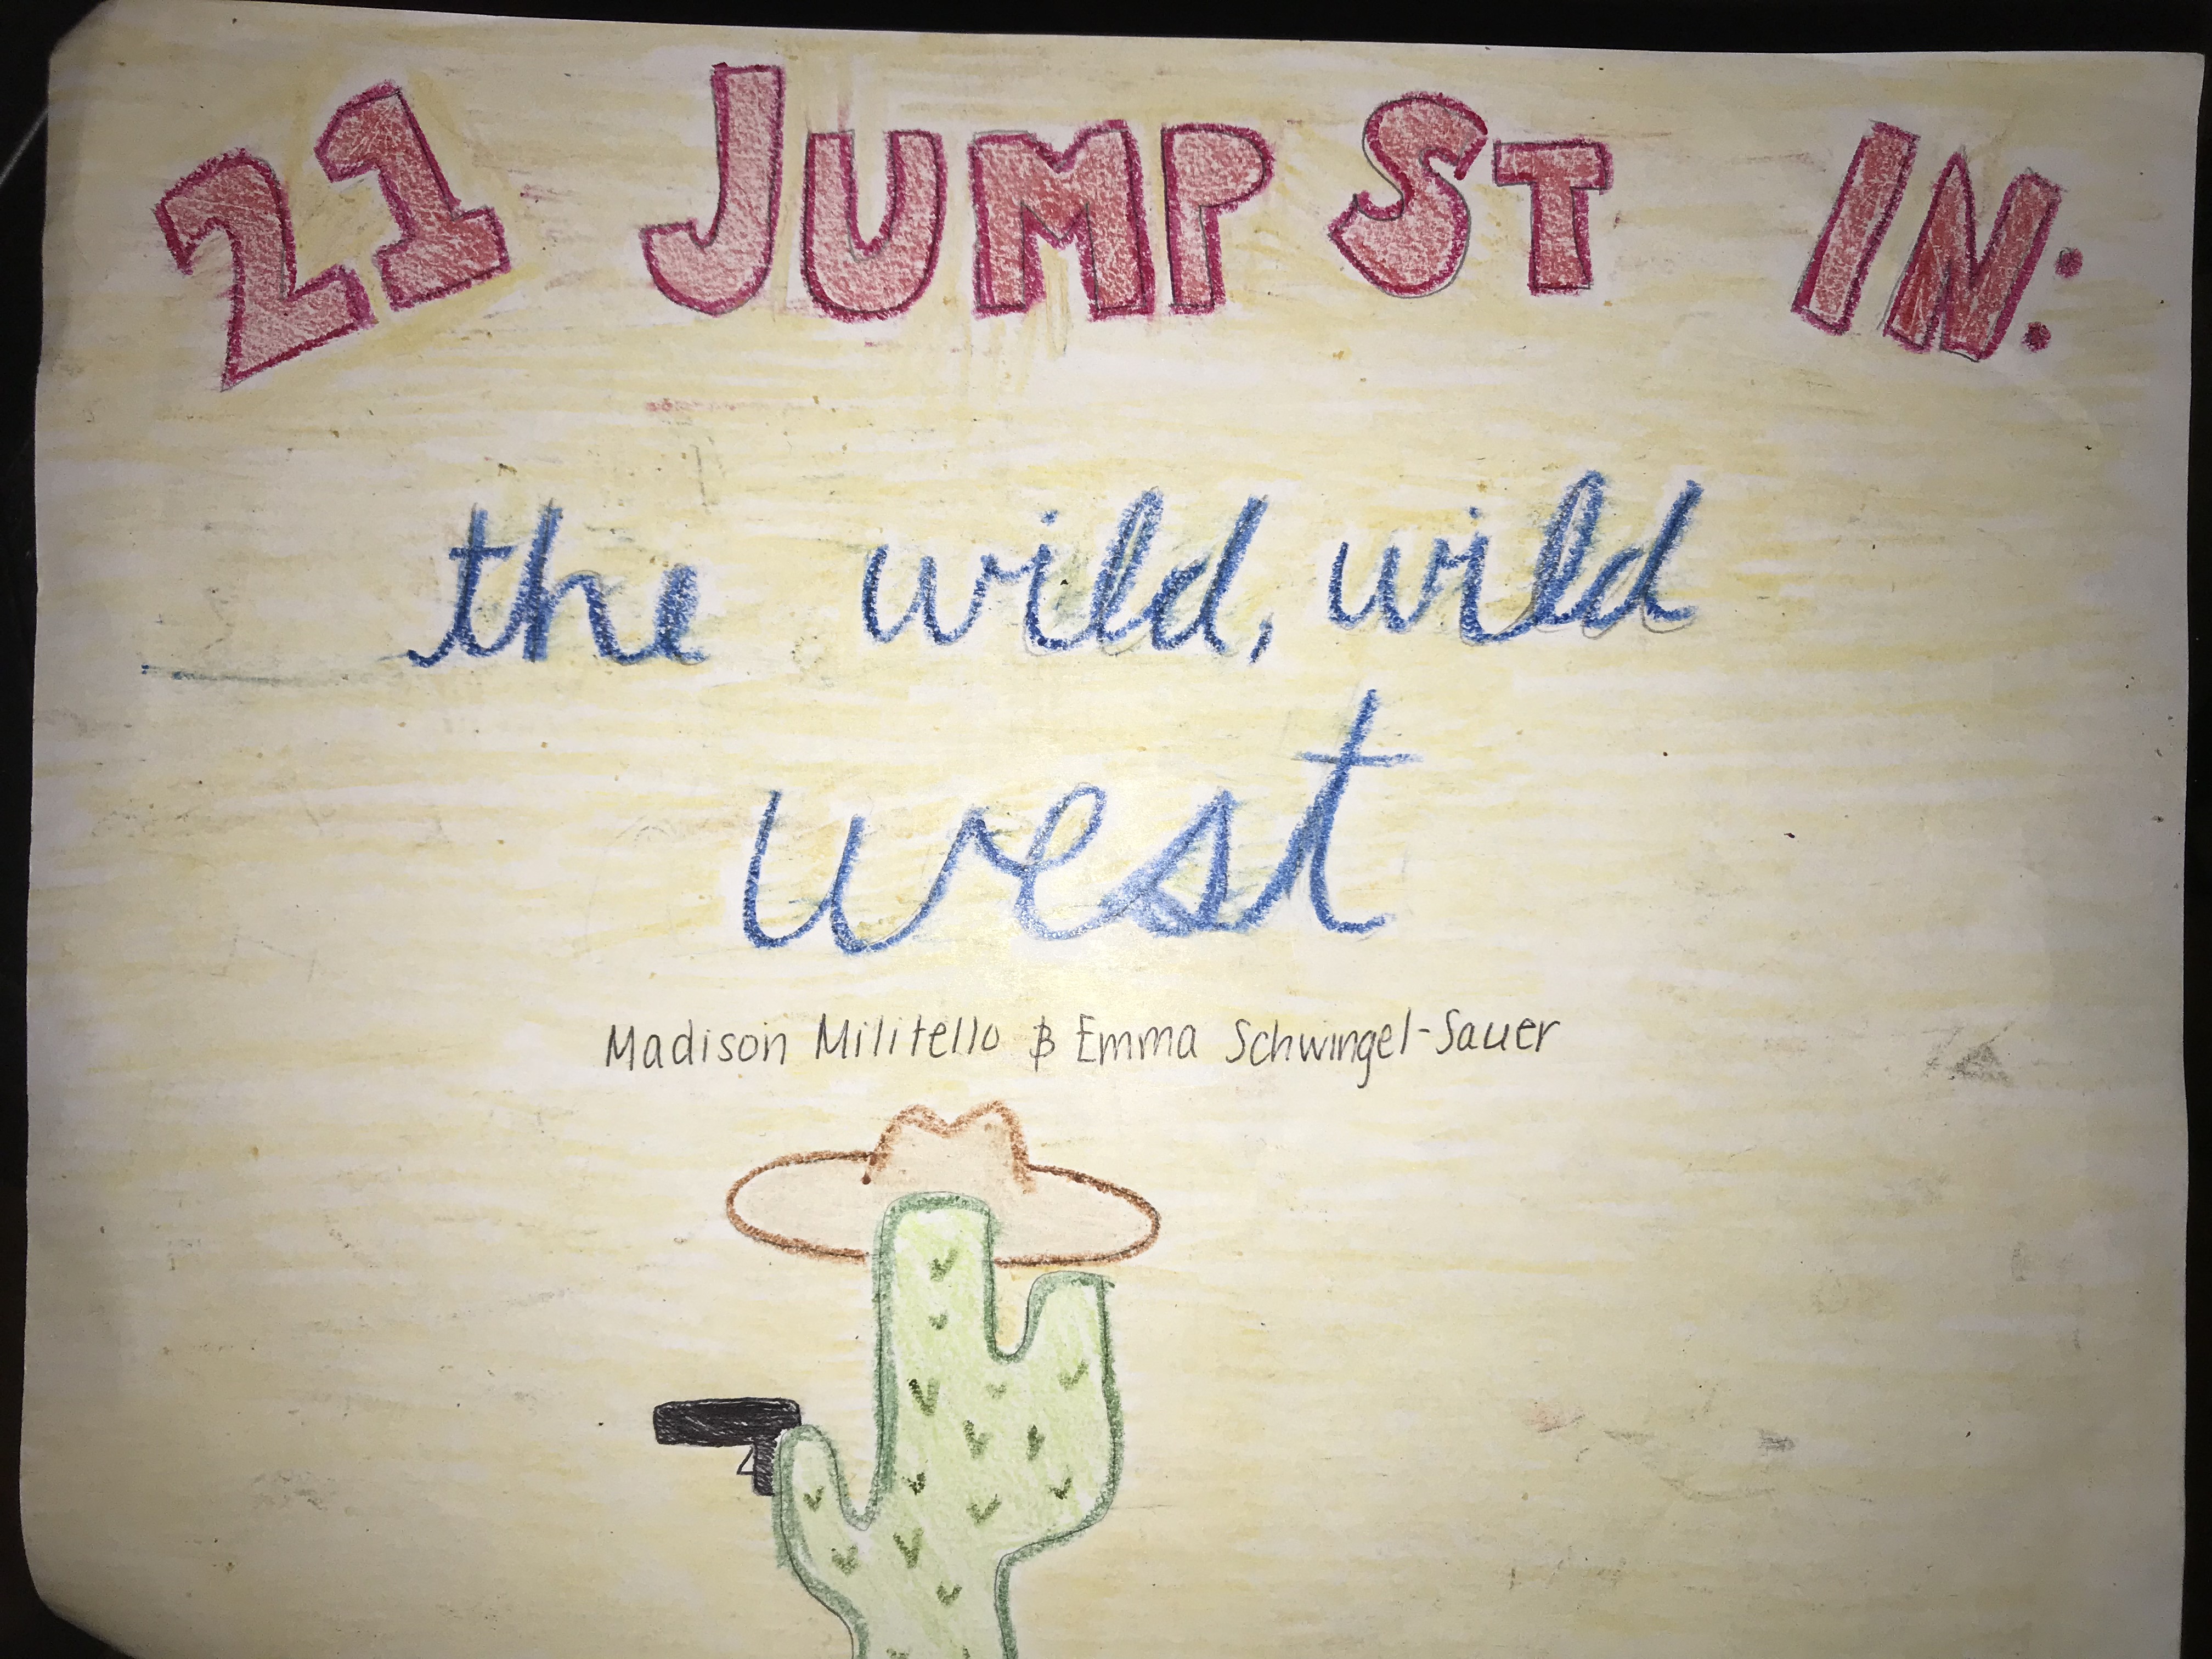 21 JUMP ST IN:
the wild, wild
west
Madison Militello & Emma Schwingel-Sauer